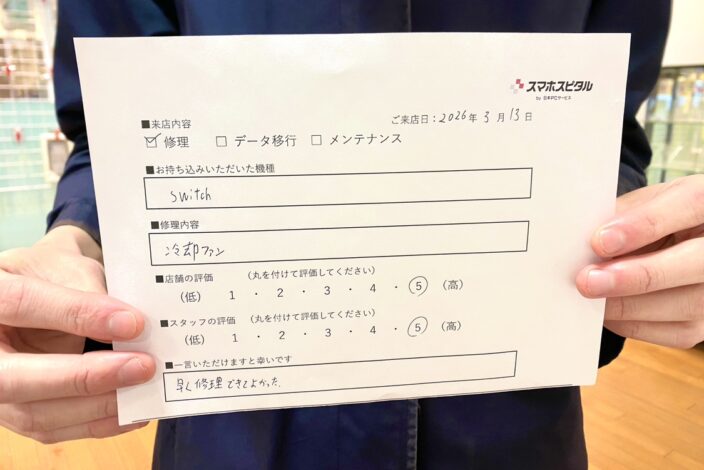 スマホスピタル
by 日本PCサービス
■来店内容
ご来店日：2026年 3月 13日
☑ 修理 □ データ移行 □ メンテナンス
■お持ち込みいただいた機種
switch
■修理内容
冷却ファン
■店舗の評価 （丸を付けて評価してください）
（低） 1 ・ 2 ・ 3 ・ 4 ・ 5 （高）
■スタッフの評価 （丸を付けて評価してください）
（低） 1 ・ 2 ・ 3 ・ 4 ・ 5 （高）
■一言いただけますと幸いです
早く修理できてよかった.